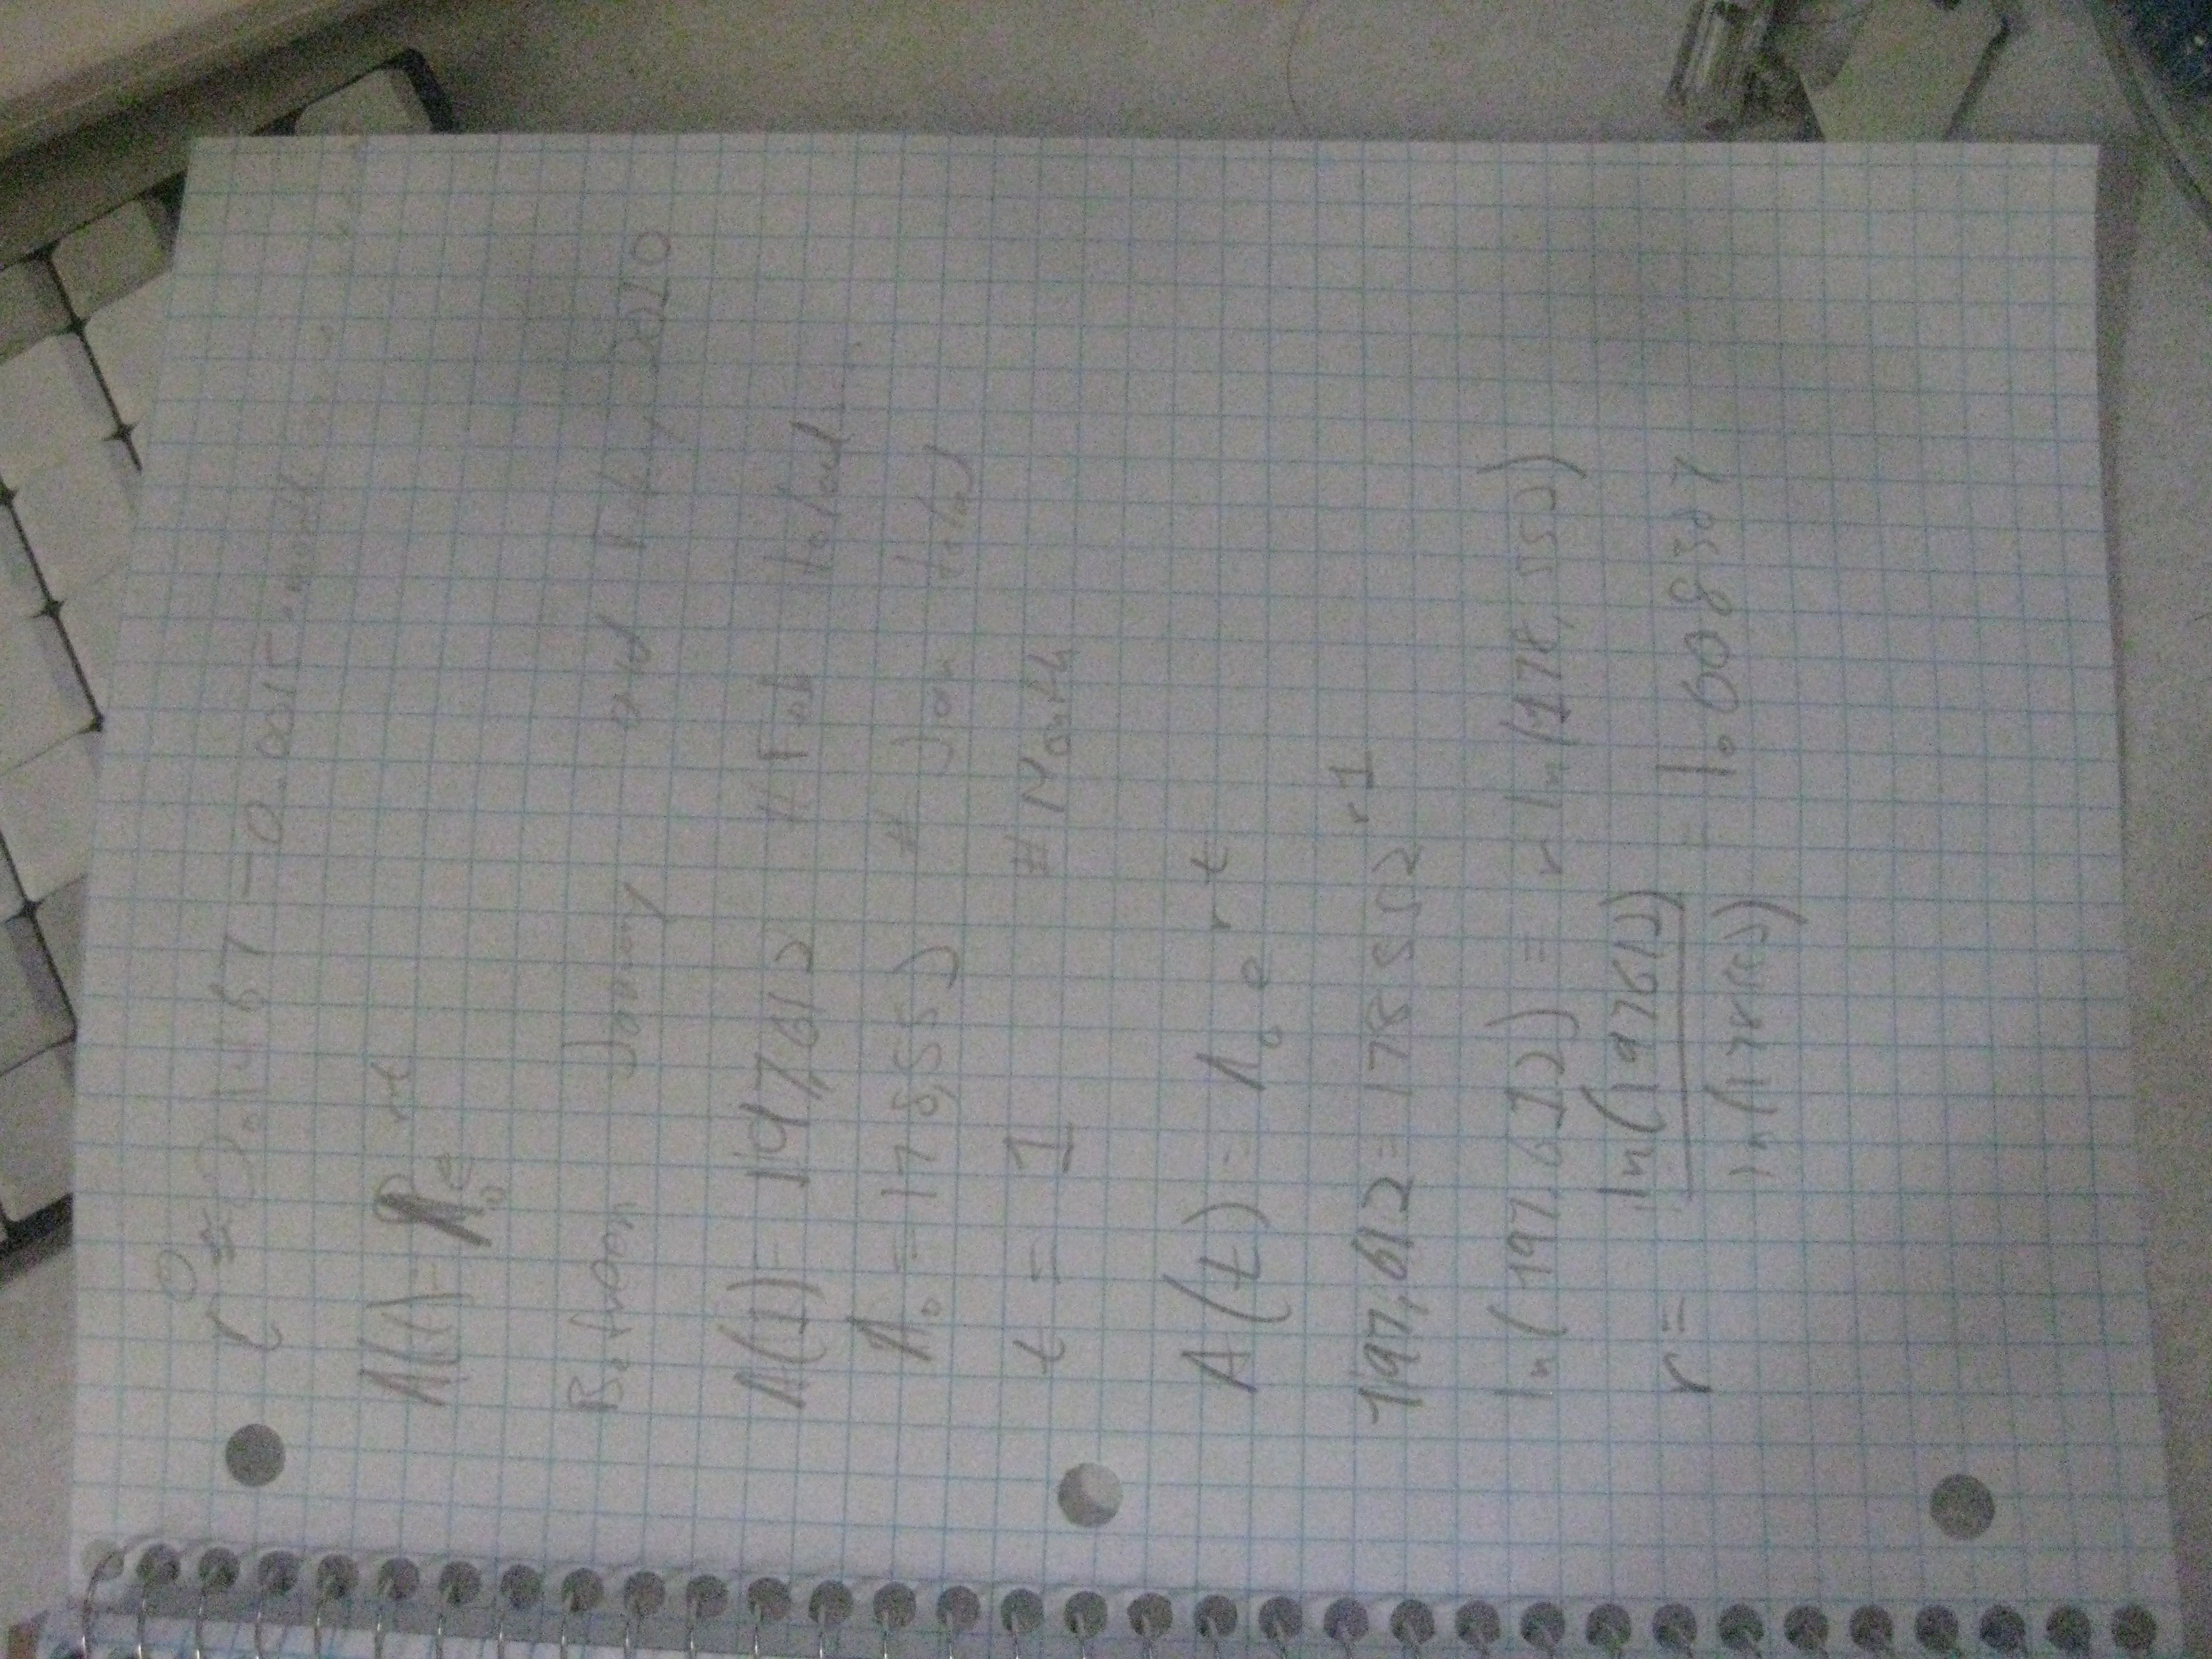 A(t) = A₀e^rt
Between January and Feb, 2010
A(1) = 197,612 # Feb total
A₀ = 178,552 # Jan total
t = 1 # Month
A(t) = A₀ e^rt
197,612 = 178552^r1
ln(197,612) = r ln(178,552)
r = ln(197612) / ln(178552) = 1.00838